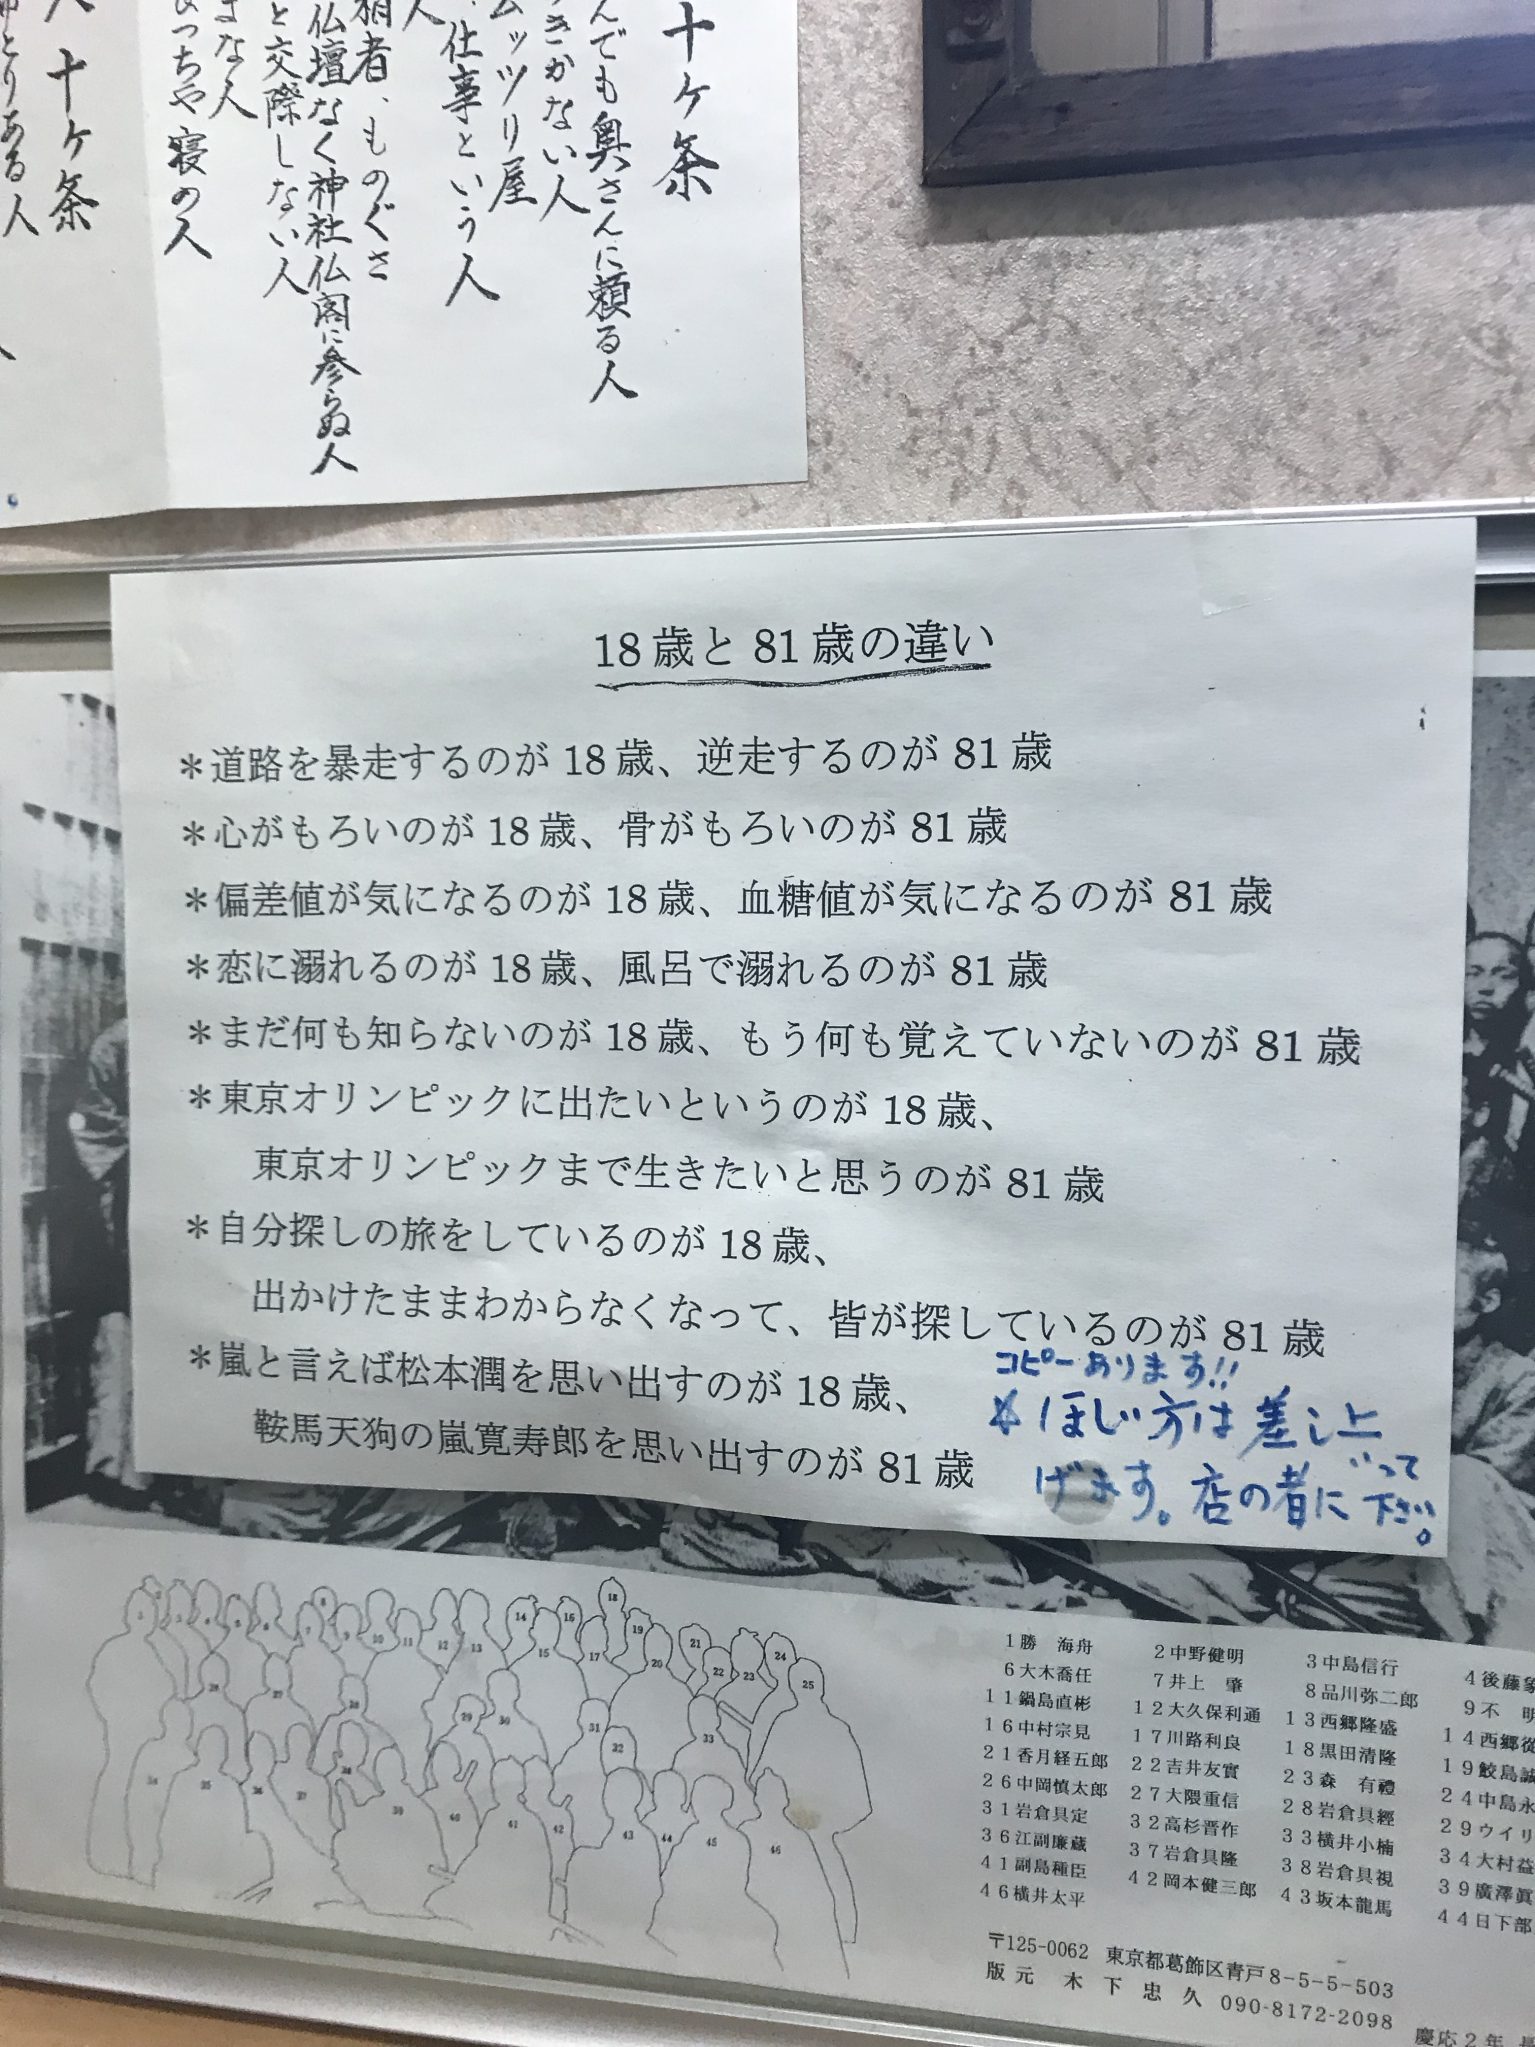 十ヶ条
んでも奥さんに頼る人
きかない人
ムッツリ屋
仕事という人
人
者、ものぐさ
仏壇なく神社仏閣に参らぬ人
と交際しない人
まな人
っちゃ寝の人
十ヶ条
とりある人
18歳と81歳の違い
＊道路を暴走するのが18歳、逆走するのが81歳
＊心がもろいのが18歳、骨がもろいのが81歳
＊偏差値が気になるのが18歳、血糖値が気になるのが81歳
＊恋に溺れるのが18歳、風呂で溺れるのが81歳
＊まだ何も知らないのが18歳、もう何も覚えていないのが81歳
＊東京オリンピックに出たいというのが18歳、
東京オリンピックまで生きたいと思うのが81歳
＊自分探しの旅をしているのが18歳、
出かけたままわからなくなって、皆が探しているのが81歳
＊嵐と言えば松本潤を思い出すのが18歳、
鞍馬天狗の嵐寛寿郎を思い出すのが81歳
コピーあります!!
☆ほしい方は差し上
げます。店の者にいって下さい。
1勝 海舟 2中野健明 3中島信行 4後藤象
6大木喬任 7井上 肇 8品川弥二郎 9不 明
11鍋島直彬 12大久保利通 13西郷隆盛 14西郷從
16中村宗見 17川路利良 18黒田清隆 19鮫島誠
21香月経五郎 22吉井友實 23森 有禮 24中島永
26中岡慎太郎 27大隈重信 28岩倉具經 29ウイリ
31岩倉具定 32高杉晋作 33横井小楠 34大村益
36江副廉蔵 37岩倉具隆 38岩倉具視 39廣澤眞
41副島種臣 42岡本健三郎 43坂本龍馬 44日下部
46横井太平
〒125-0062 東京都葛飾区青戸8-5-5-503
版元 木下忠久 090-8172-2098
慶応2年